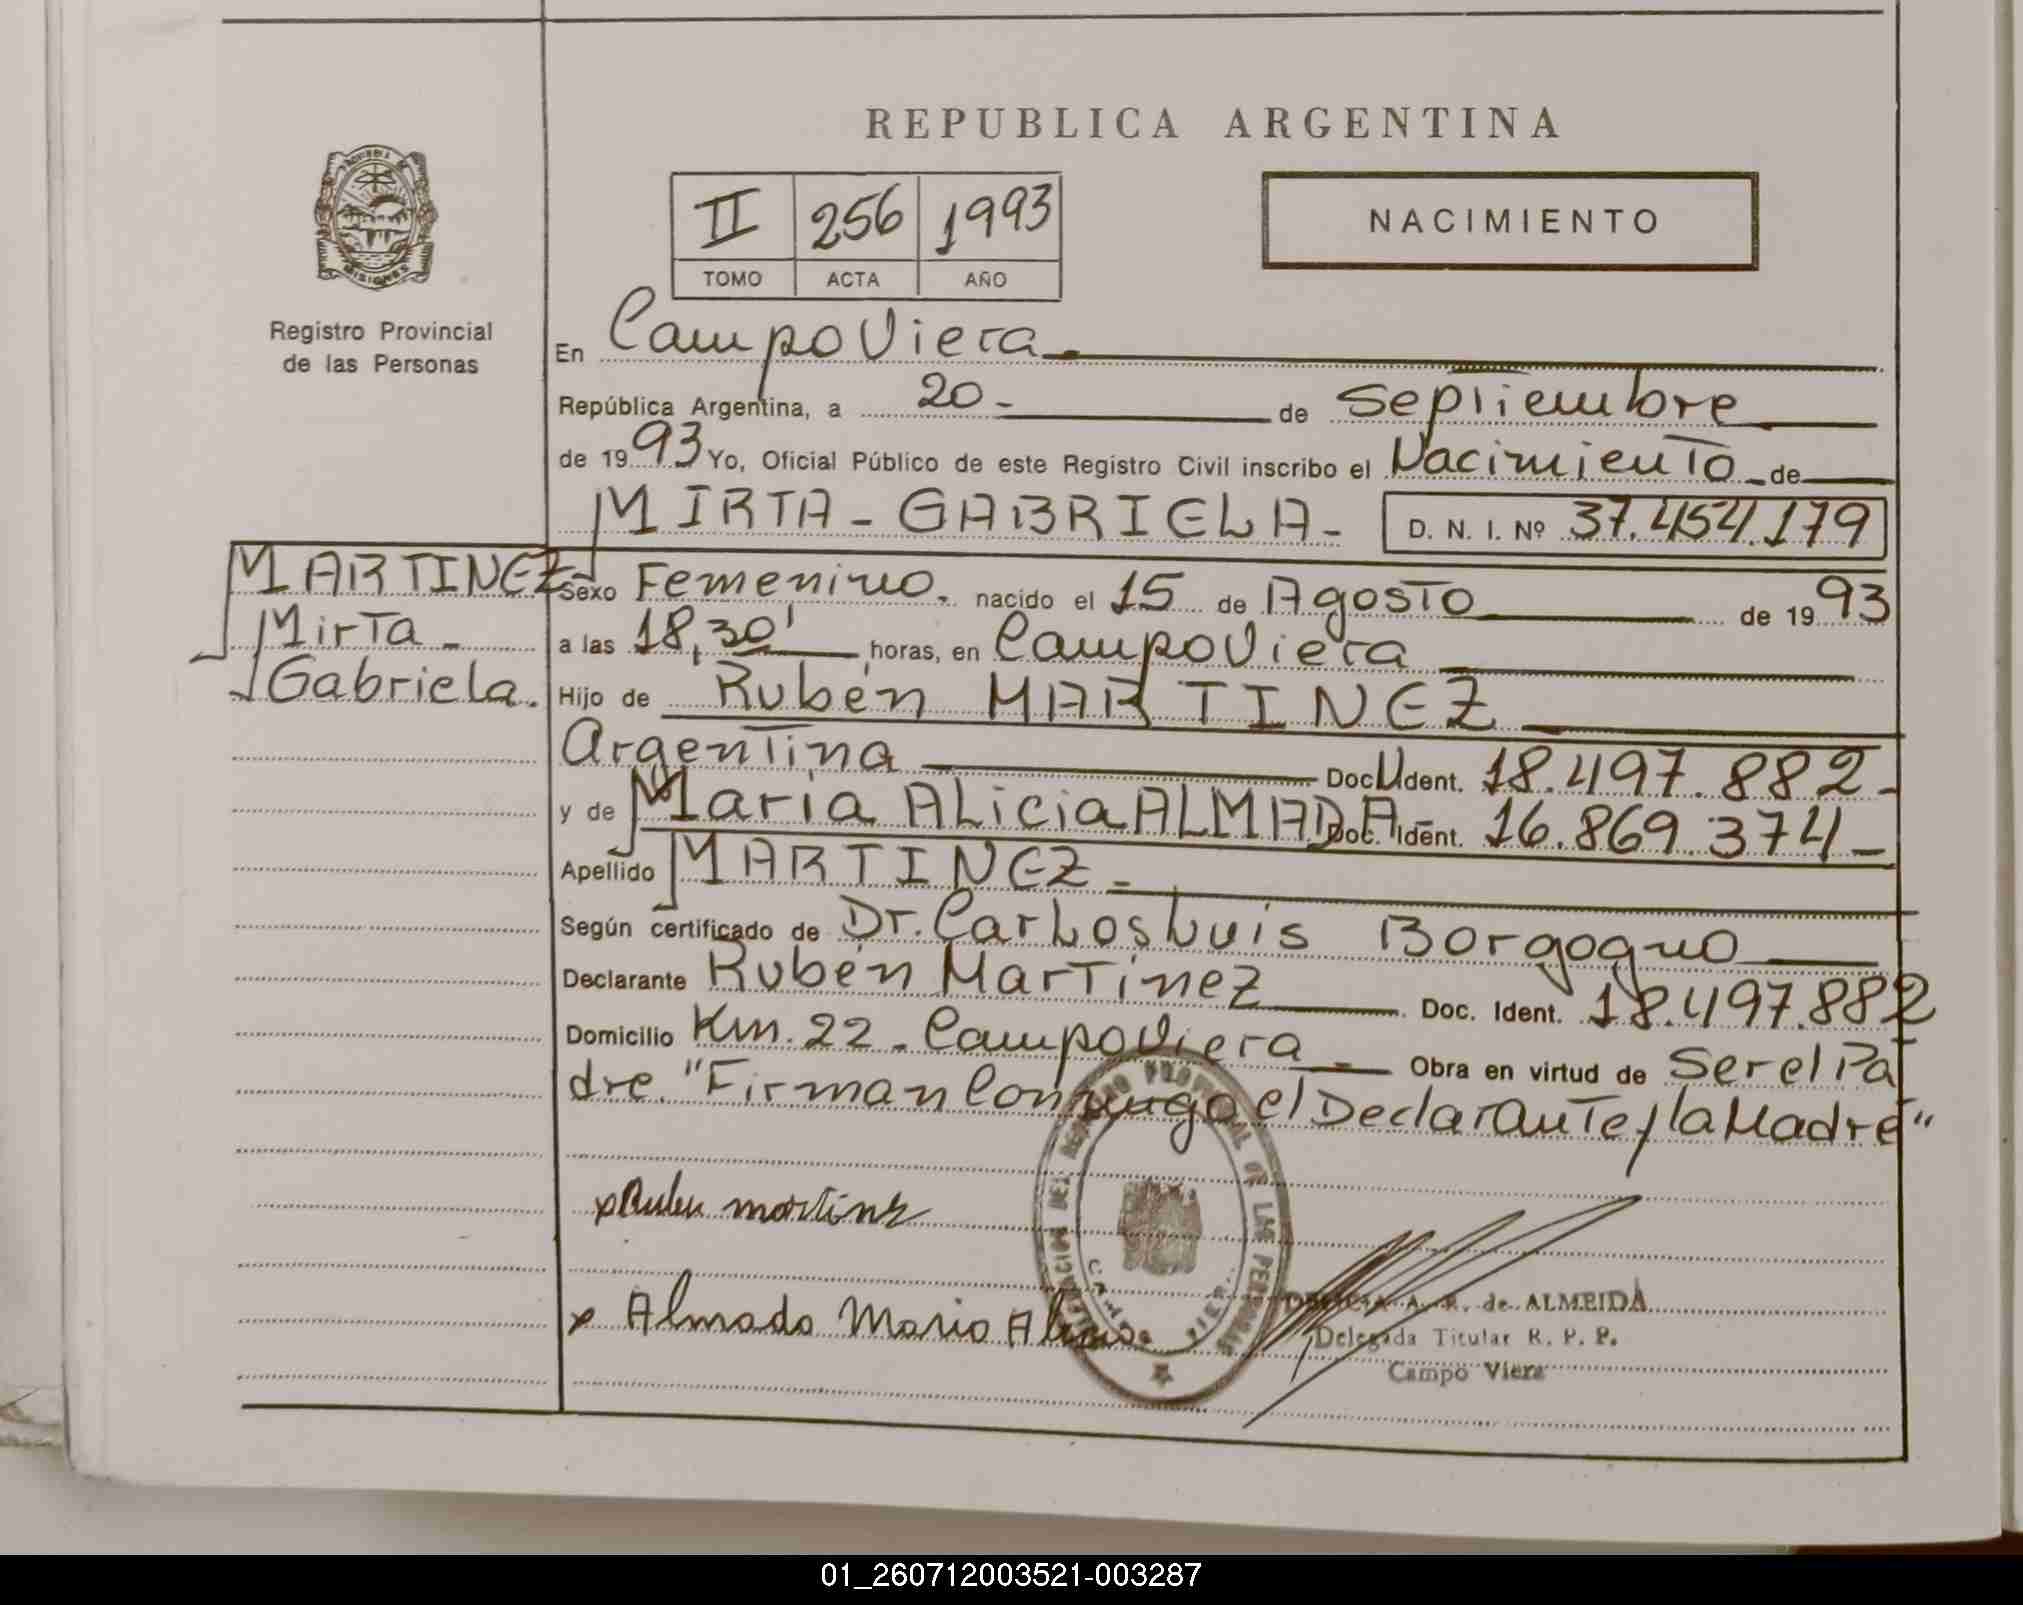 REPUBLICA ARGENTINA
PROVINCIA DE
MISIONES
Registro Provincial
de las Personas
II 256 1993
TOMO ACTA AÑO
NACIMIENTO
En Campo Viera
República Argentina, a 20 - de Septiembre
de 1993 Yo, Oficial Público de este Registro Civil inscribo el Nacimiento de
MIRTA - GABRIELA - D. N. I. Nº 37.454.179
MARTINEZ
Mirta -
Gabriela.
Sexo Femenino. nacido el 15 de Agosto de 1993
a las 18,30' horas, en Campo Viera
Hijo de Rubén MARTINEZ
Argentina Doc. Ident. 18.497.882 -
y de María ALicia ALMADA Doc. Ident. 16.869.374 -
Apellido MARTINEZ -
Según certificado de Dr. Carlos Luis Borgogno
Declarante Rubén Martínez Doc. Ident. 18.497.882
Domicilio Km. 22 - Campo Viera - Obra en virtud de Ser el Pa
dre. "Firman Conmigo el Declarante y la Madre"
x Ruben martinez
x Almada Maria
A. R. de ALMEIDA
Delegada Titular R. P. P.
Campo Viera
01_260712003521-003287